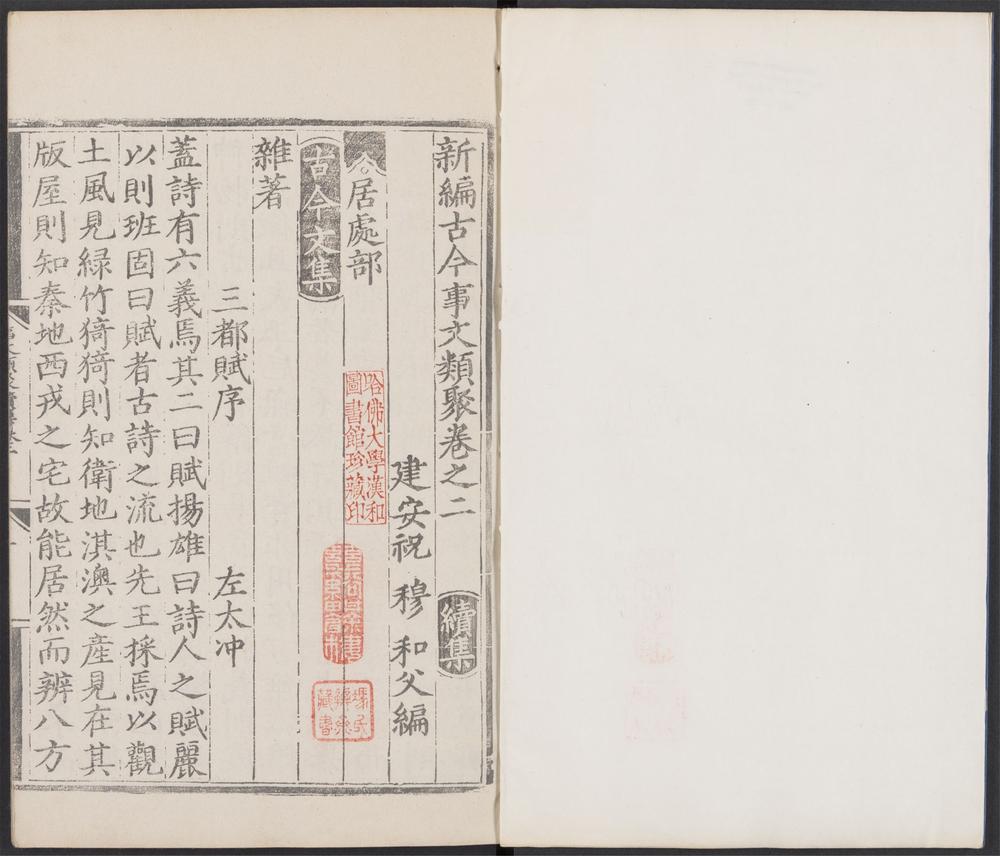 新編古今事文類聚卷之二 續集
建安祝 穆 和父編
居處部
古今文集
雜著
三都賦序 左太冲
蓋詩有六義焉其二曰賦揚雄曰詩人之賦麗
以則班固曰賦者古詩之流也先王採焉以觀
土風見緑竹猗猗則知衛地淇澳之產見在其
版屋則知秦地西戎之宅故能居然而辨八方
哈佛大學漢和
圖書館珍藏印